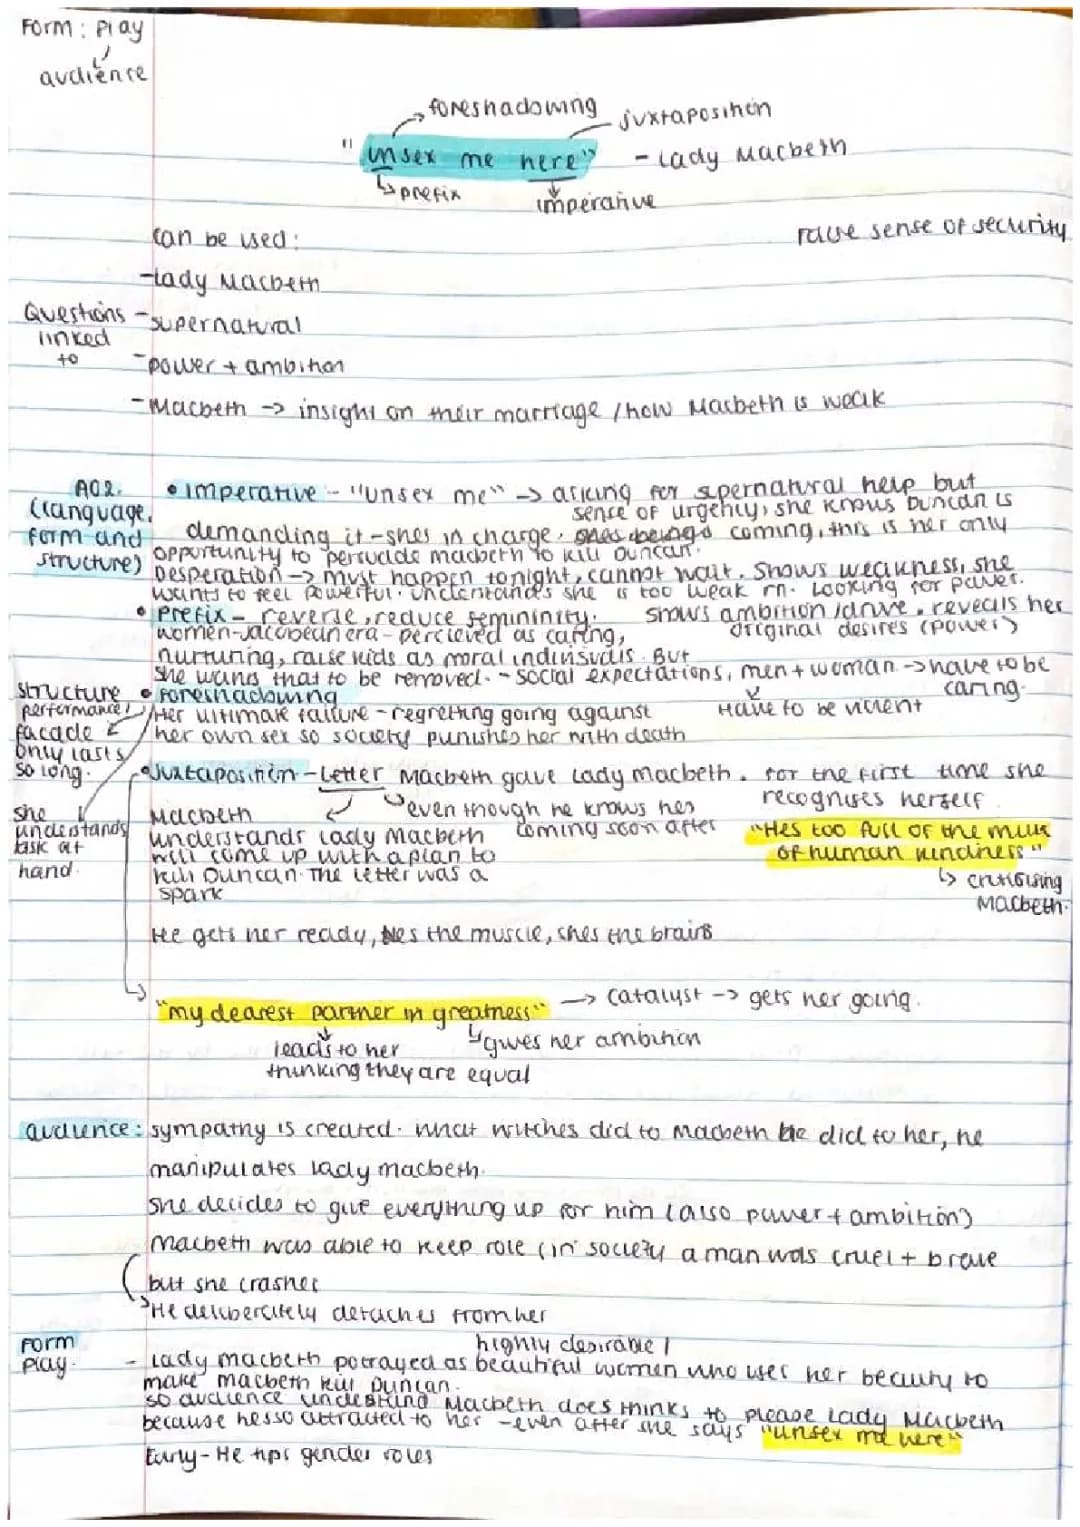 Form: Play
audience
foreshadowing
juxtaposition
"unsex me here" - Lady Macbeth
prefix
imperative
can be used:
false sense of security
-Lady Macbeth
Questions linked to
-supernatural
-power + ambition
-Macbeth -> insight on their marriage / how Macbeth is weak
AO2.
(language, form and structure)
• imperative - "unsex me" -> asking for supernatural help but
demanding it - shes in charge.
sense of urgency, she knows Duncan is
coming, this is her only
opportunity to persuade macbeth to kill Duncan.
Desperation -> must happen tonight, cannot wait. Shows weakness, she
wants to feel powerful. understands she is too weak rn. Looking for power.
• Prefix - reverse, reduce femininity.
shows ambition/drive. reveals her
original desires (power)
women-Jacobean era - percieved as caring,
nurturing, raise kids as moral
But
she wants that to be removed. - social expectations, men + woman -> have to be
caring.
Have to be violent
• Foreshadowing
Her ultimate failure - regretting going against
her own sex so society punishes her with death
structure
performance/
facade
only lasts
so long.
• Juxtaposition - Letter Macbeth gave Lady macbeth. For the first time she
recognises herself
even though he knows hes
coming soon after
she
understands
task at
hand.
Macbeth
understands Lady Macbeth
will come up with a plan to
kill Duncan. The letter was a
spark
"Hes too full of the milk
of human kindness"
criticising
Macbeth.
He gets her ready, hes the muscle, shes the brains
"my dearest partner in greatness" -> catalyst -> gets her going.
leads to her
thinking they are equal
gives her ambition
audience: sympathy is created. what witches did to Macbeth he did to her, he
manipulates lady macbeth.
she decides to give everything up for him (also power + ambition)
Macbeth was able to keep role (in society a man was cruel + brave
but she crashes
He deliberately detaches from her
Form
Play.
highly desirable /
- Lady macbeth potrayed as beautiful women who uses her beauty to
make macbeth kill Duncan.
so audience understand Macbeth does thinks to please Lady Macbeth
because hes so attracted to her - even after she says "unsex me here"
Early - He flips gender roles